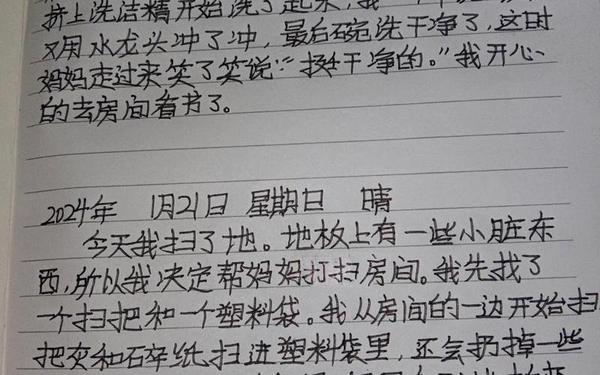 挤上洗洁精开始洗了起来,我一
又用水龙头冲了冲,最后碗洗干净了,这时
妈妈走过来笑了笑说:“挺干净的。”我开心
的去房间看书了。
2024年 1月21日 星期日 晴
今天我扫了地。地板上有一些小脏东
西,所以我决定帮妈妈打扫房间。我先找了
一个扫把和一个塑料袋。我从房间的一边开始扫
把灰和碎纸扫进塑料袋里,还会扔掉一些